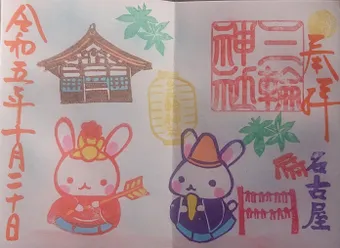 奉拝
三輪
神社
名古屋
令和五年十月二十日